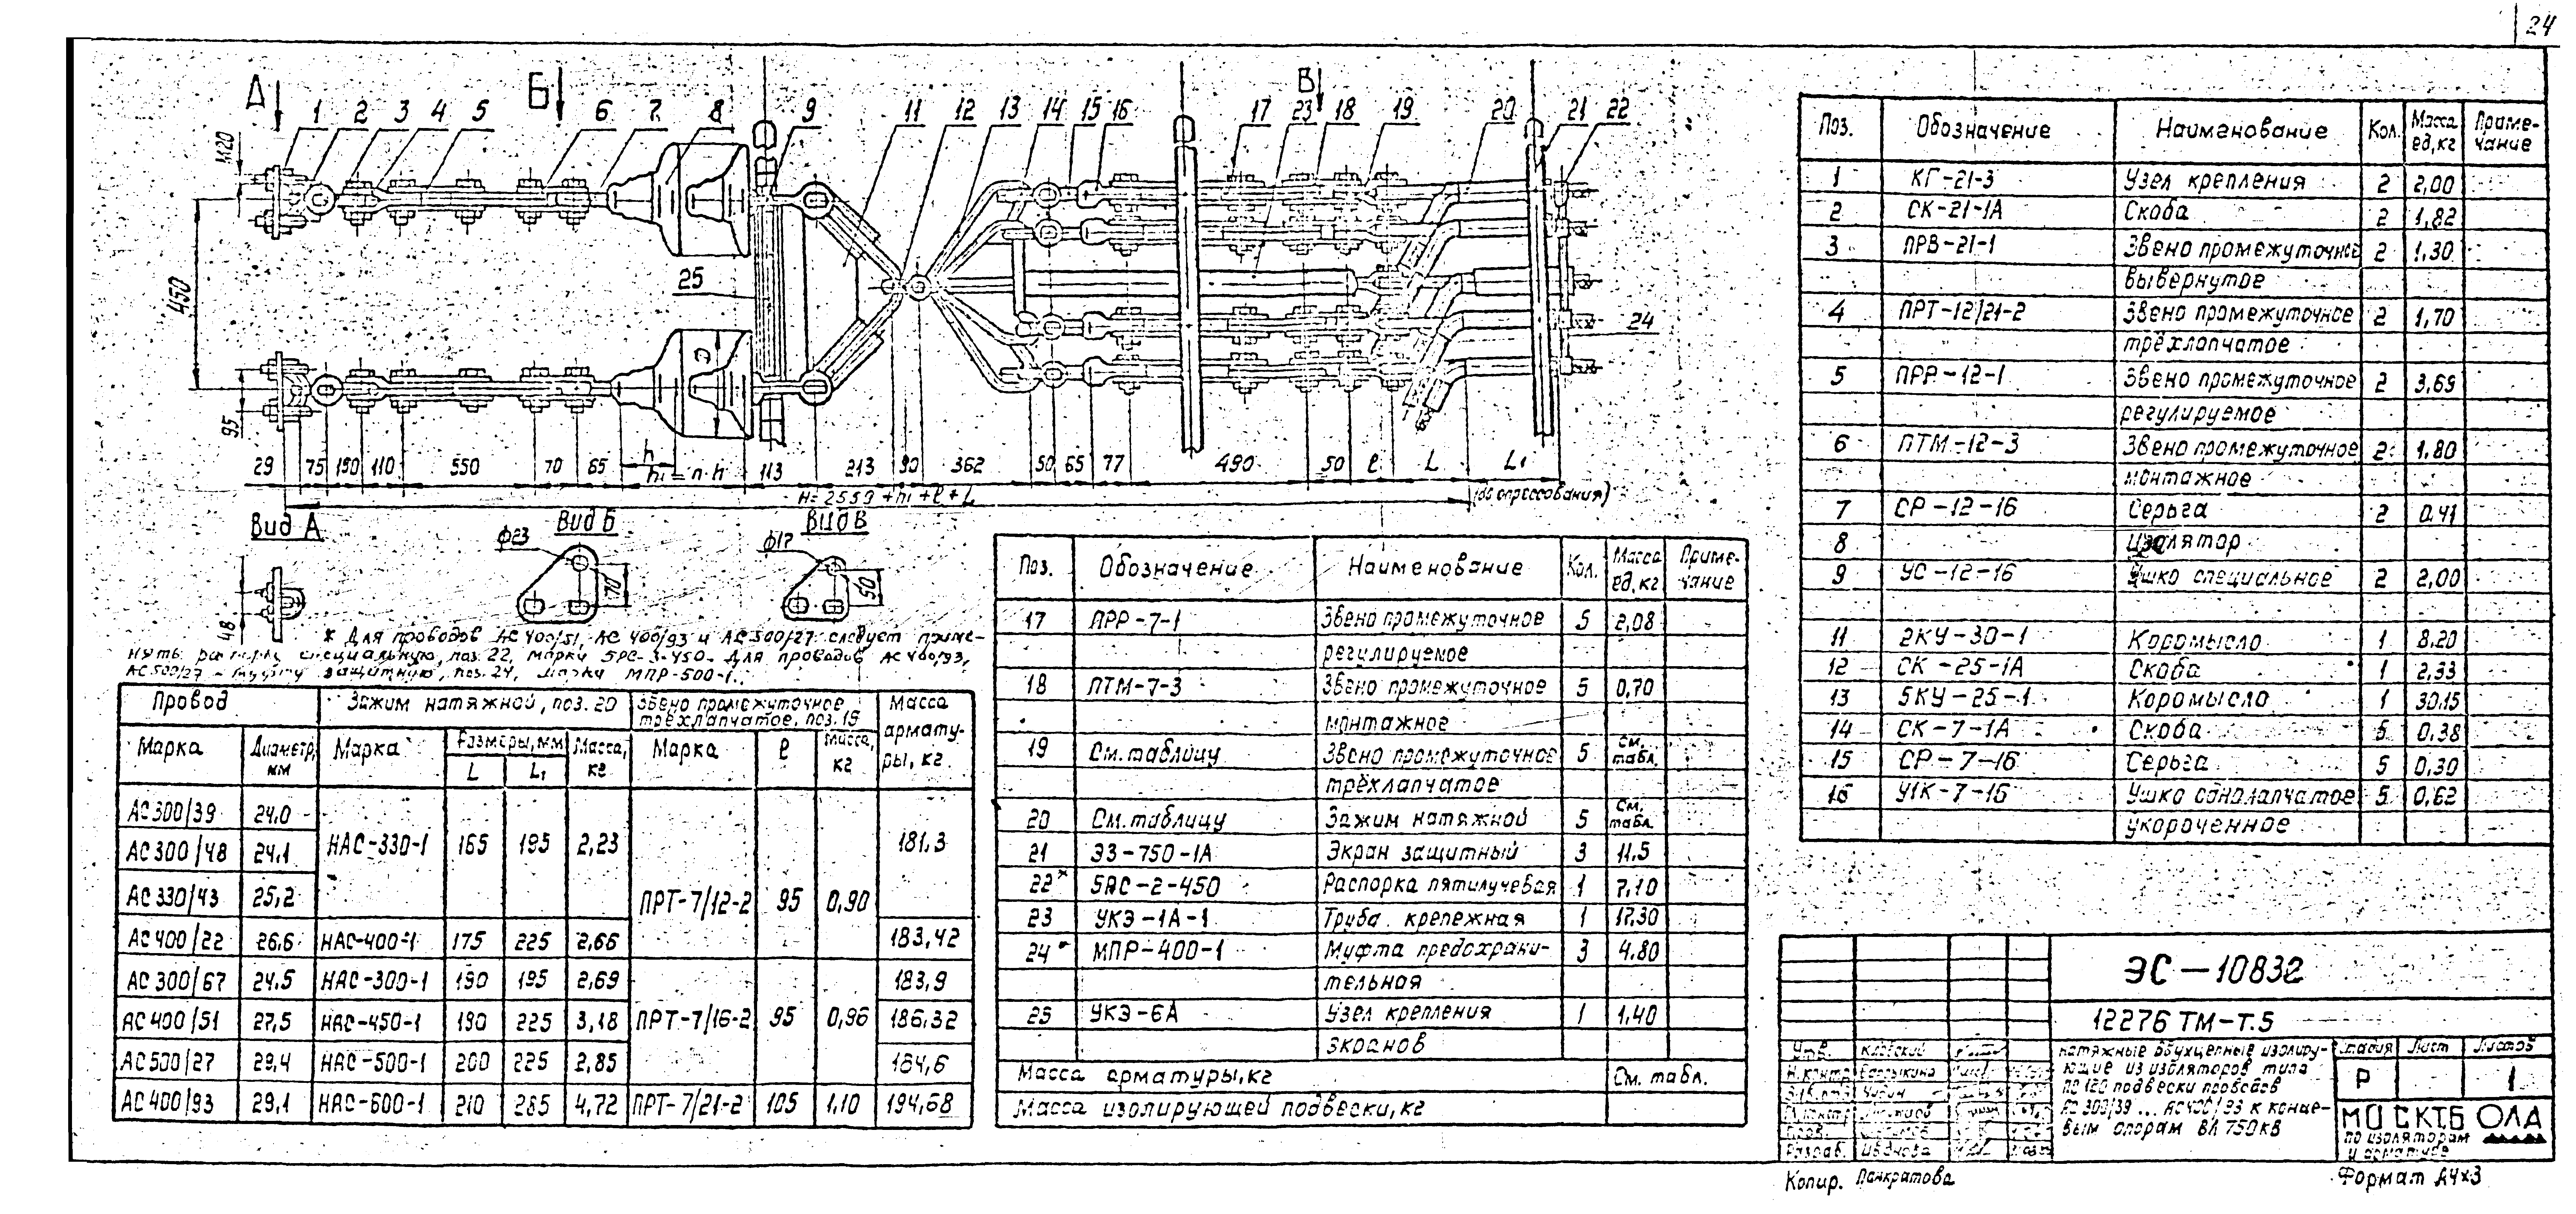 24
А
Б
В
1 2 3 4 5 6 7 8 9 11 12 13 14 15 16 17 23 18 19 20 21 22
М20
450
25
24
95
29 75 150 110 550 70 65 h 113 213 90 362 50 65 77 490 50 ℓ L L₁
h₁ = n·h
H = 2559 + h₁ + ℓ + L
(до опрессования)
Вид А
Вид Б
Вид В
ф23
ф17
70
50
48
* Для проводов АС 400/51, АС 400/93 и АС 500/27 следует приме-
нять распорку специальную, поз. 22, марки 5РС-3-450. Для проводов АС 400/93,
АС 500/27 – муфту защитную, поз. 24, марки МПР-500-1.
Провод Зажим натяжной, поз. 20 Звено промежуточное трёхлапчатое, поз. 19 Масса армату-ры, кг
Марка Диаметр, мм Марка Размеры, мм Масса, кг Марка ℓ Масса, кг
L L₁
АС 300/39 24,0
АС 300/48 24,1 НАС-330-1 165 195 2,23 181,3
АС 330/43 25,2 ПРТ-7/12-2 95 0,90
АС 400/22 26,6 НАС-400-1 175 225 2,66 183,42
АС 300/67 24,5 НАС-300-1 190 195 2,69 183,9
АС 400/51 27,5 НАС-450-1 190 225 3,18 ПРТ-7/16-2 95 0,96 186,32
АС 500/27 29,4 НАС-500-1 200 225 2,85 184,6
АС 400/93 29,1 НАС-600-1 210 265 4,72 ПРТ-7/21-2 105 1,10 194,68
Поз. Обозначение Наименование Кол. Масса ед, кг Приме-чание
17 ПРР-7-1 Звено промежуточное 5 2,08
регулируемое
18 ПТМ-7-3 Звено промежуточное 5 0,70
монтажное
19 См. таблицу Звено промежуточное 5 см. табл.
трёхлапчатое
20 См. таблицу Зажим натяжной 5 см. табл.
21 ЭЗ-750-1А Экран защитный 3 11,5
22* 5АС-2-450 Распорка пятилучевая 1 7,10
23 УКЭ-1А-1 Труба крепежная 1 17,30
24* МПР-400-1 Муфта предохрани- 3 4,80
тельная
25 УКЭ-6А Узел крепления 1 1,40
экранов
Масса арматуры, кг См. табл.
Масса изолирующей подвески, кг
Поз. Обозначение Наименование Кол. Масса ед, кг Приме-чание
1 КГ-21-3 Узел крепления 2 2,00
2 СК-21-1А Скоба 2 1,82
3 ПРВ-21-1 Звено промежуточное 2 1,30
вывернутое
4 ПРТ-12/21-2 Звено промежуточное 2 1,70
трёхлапчатое
5 ПРР-12-1 Звено промежуточное 2 3,69
регулируемое
6 ПТМ-12-3 Звено промежуточное 2 1,80
монтажное
7 СР-12-16 Серьга 2 0,41
8 Изолятор
9 УС-12-16 Ушко специальное 2 2,00
11 2КУ-30-1 Коромысло 1 8,20
12 СК-25-1А Скоба 1 2,33
13 5КУ-25-1 Коромысло 1 30,15
14 СК-7-1А Скоба 5 0,38
15 СР-7-16 Серьга 5 0,30
16 У1К-7-16 Ушко однолапчатое 5 0,62
укороченное
ЭС-10832
12276 ТМ-Т.5
Натяжные двухцепные изолиру-
ющие из изоляторов типа
ПС 120 подвески проводов
АС 300/39 ... АС 400/93 к конце-
вым опорам ВЛ 750 кВ
Стадия Лист Листов
Р 1
МОСКТБ ОЛА
по изоляторам
и арматуре
Утв.
Н.контр.
Пров.
Разраб. Иванова
Копир. Панкратова
Формат А4х3